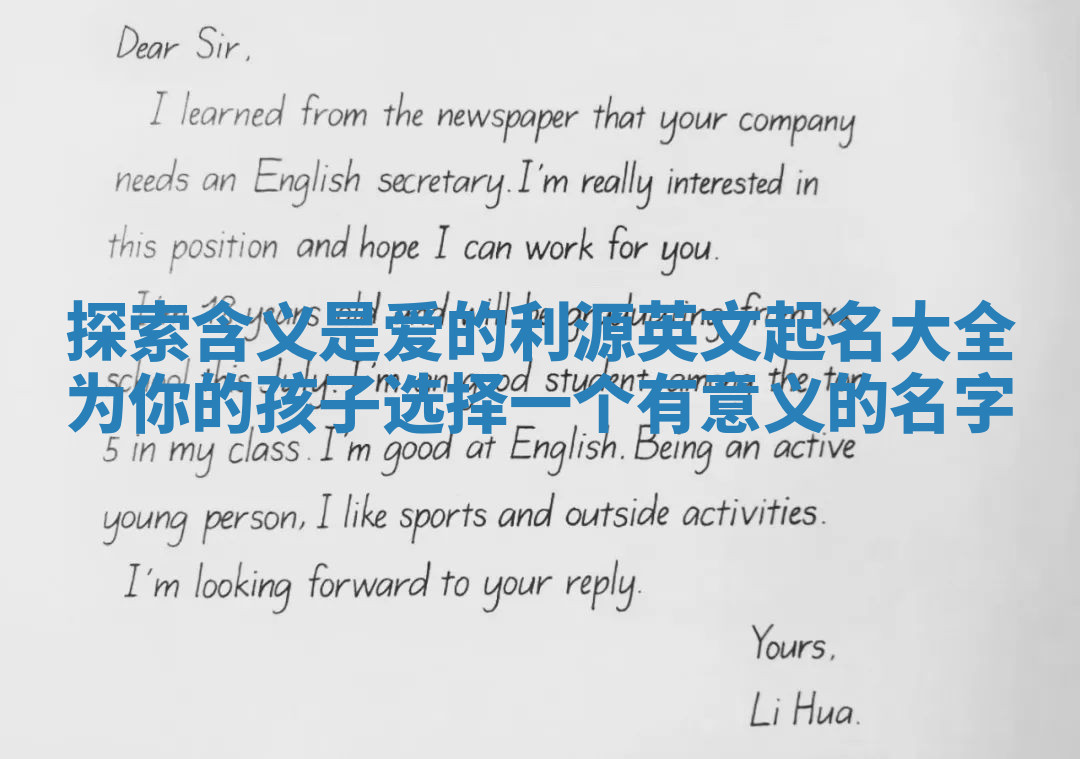 Dear Sir,
I learned from the newspaper that your company
needs an English secretary. I'm really interested in
this position and hope I can work for you.
I'm 18 years old and will be graduating from xx
探索含义是爱的利源英文起名大全
school this July. I'm an good student among the top
为你的孩子选择一个有意义的名字
5 in my class. I'm good at English. Being an active
young person, I like sports and outside activities.
I'm looking forward to your reply.
Yours,
Li Hua.